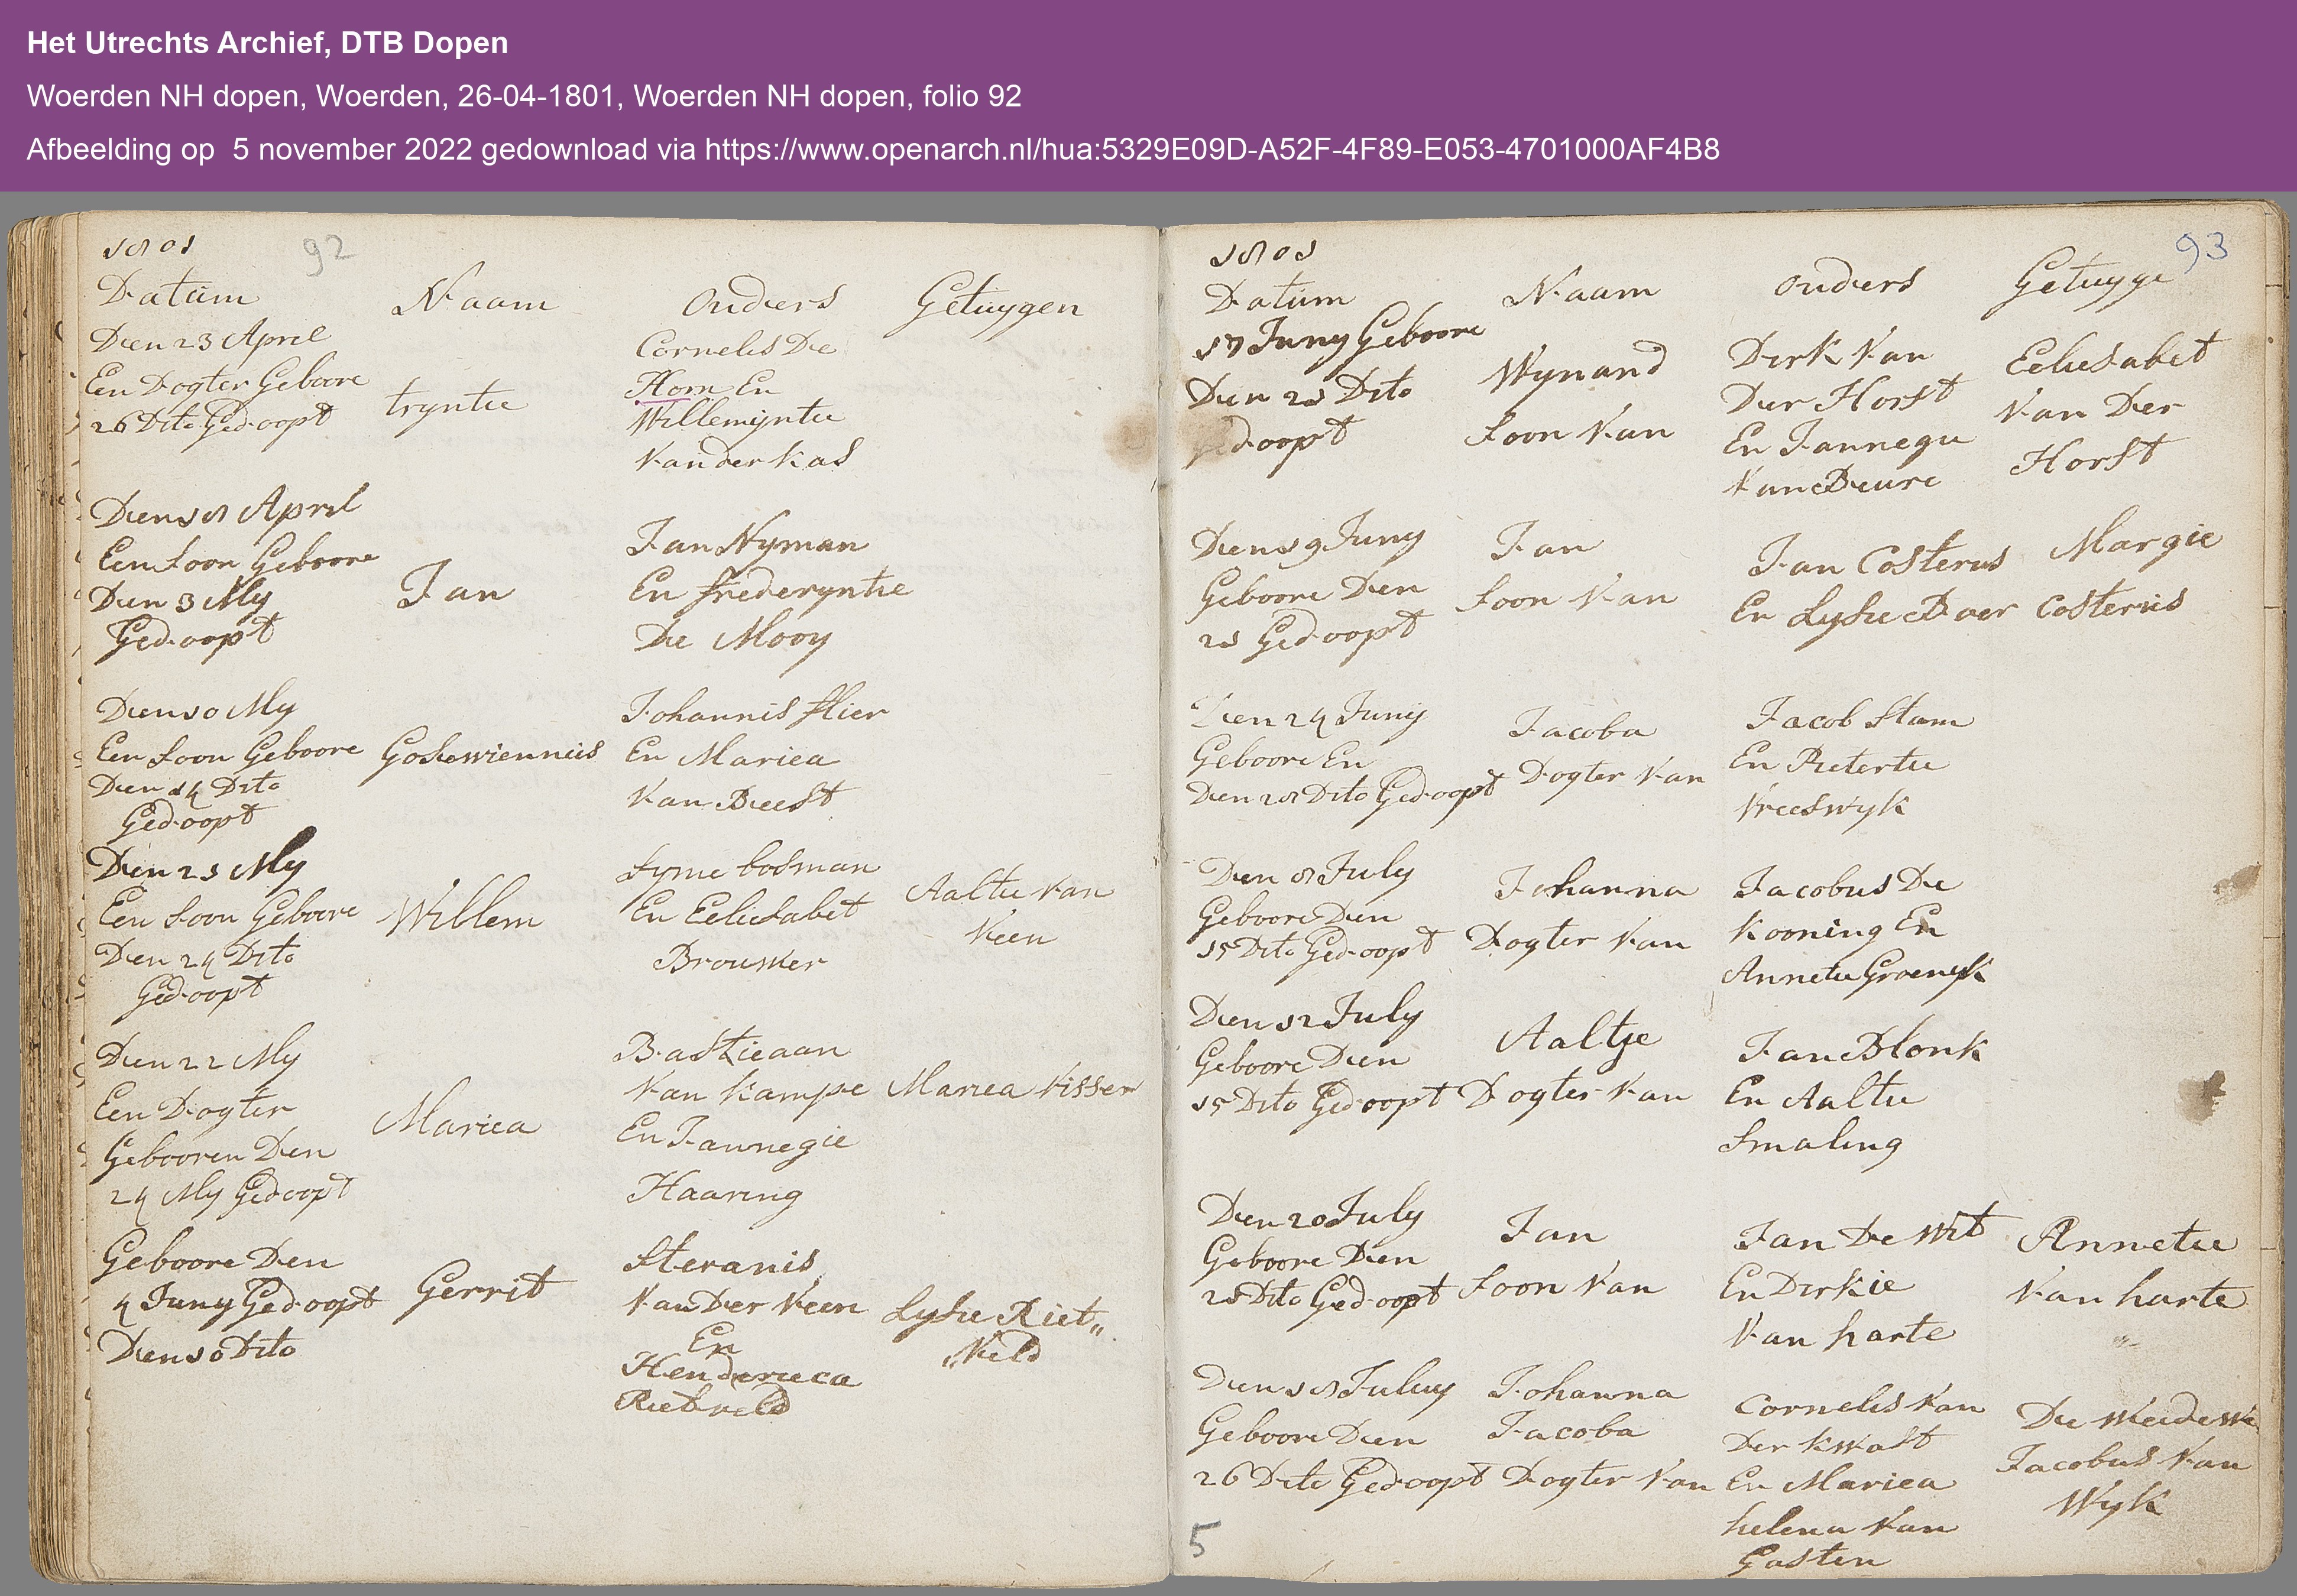 Het Utrechts Archief, DTB Dopen
Woerden NH dopen, Woerden, 26-04-1801, Woerden NH dopen, folio 92
Afbeelding op 5 november 2022 gedownload via https://www.openarch.nl/hua:5329E09D-A52F-4F89-E053-4701000AF4B8
1801
92
Datum Naam Ouders Getuygen
Dien 23 April
Een Dogter Geboore
26 Dito Gedoopt
tryntie
Cornelis De
Horn En
Willemijntie
Van der Kas
Dien 18 April
Een Soon Geboore
Dien 3 My
Gedoopt
Jan
Jan Nyman
En frederyntie
De Mooy
Dien 10 My
Een Soon Geboore
Dien 14 Dito
Gedoopt
Gosewiennus
Johannis flier
En Mariea
Van Beest
Dien 21 My
Een Soon Geboore
Dien 24 Dito
Gedoopt
Willem
Syme bosman
En Eeliesabet
Brouwer
Aaltie Van
Veen
Dien 22 My
Een Dogter
Gebooren Dien
24 My Gedoopt
Mariea
Bastieaan
Van Kampe
En Jannegie
Haaring
Mariea Visser
Geboore Den
4 Juny Gedoopt
Dien 10 Dito
Gerrit
Steranis
Van Der Veen
En
Henderieca
Rietveld
Lysie Riet„
„Veld
1801
93
Datum Naam Ouders Getuyge
17 Juny Geboore
Dien 21 Dito
Gedoopt
Wynand
Soon Van
Dirk Van
Der Horst
En Jannegie
Van Beure
Eeliesabet
Van Der
Horst
Dien 19 Juny
Geboore Den
21 Gedoopt
Jan
Soon Van
Jan Costerus
En Lysie Boer
Margie
Costerus
Dien 24 Juny
Geboore En
Dien 28 Dito Gedoopt
Jacoba
Dogter Van
Jacob Stam
En Pietertie
Vreeswyk
Dien 8 July
Geboore Dien
15 Dito Gedoopt
Johanna
Dogter Van
Jacobus De
Kooning En
Annetie
Dien 12 July
Geboore Dien
15 Dito Gedoopt
Aaltje
Dogter Van
Jan Blonk
En Aaltie
Smaling
Dien 20 July
Geboore Dien
21 Dito Gedoopt
Jan
Soon Van
Jan De Wit
En Dirkie
Van harte
Annetie
Van harte
Dien 18 Juluy
Geboore Dien
26 Dito Gedoopt
Johanna
Jacoba
Dogter Van
Cornelis Van
Der Kwast
En Mariea
helena Van
Gasten
De Weedewe
Jacobus Van
Wyk
5